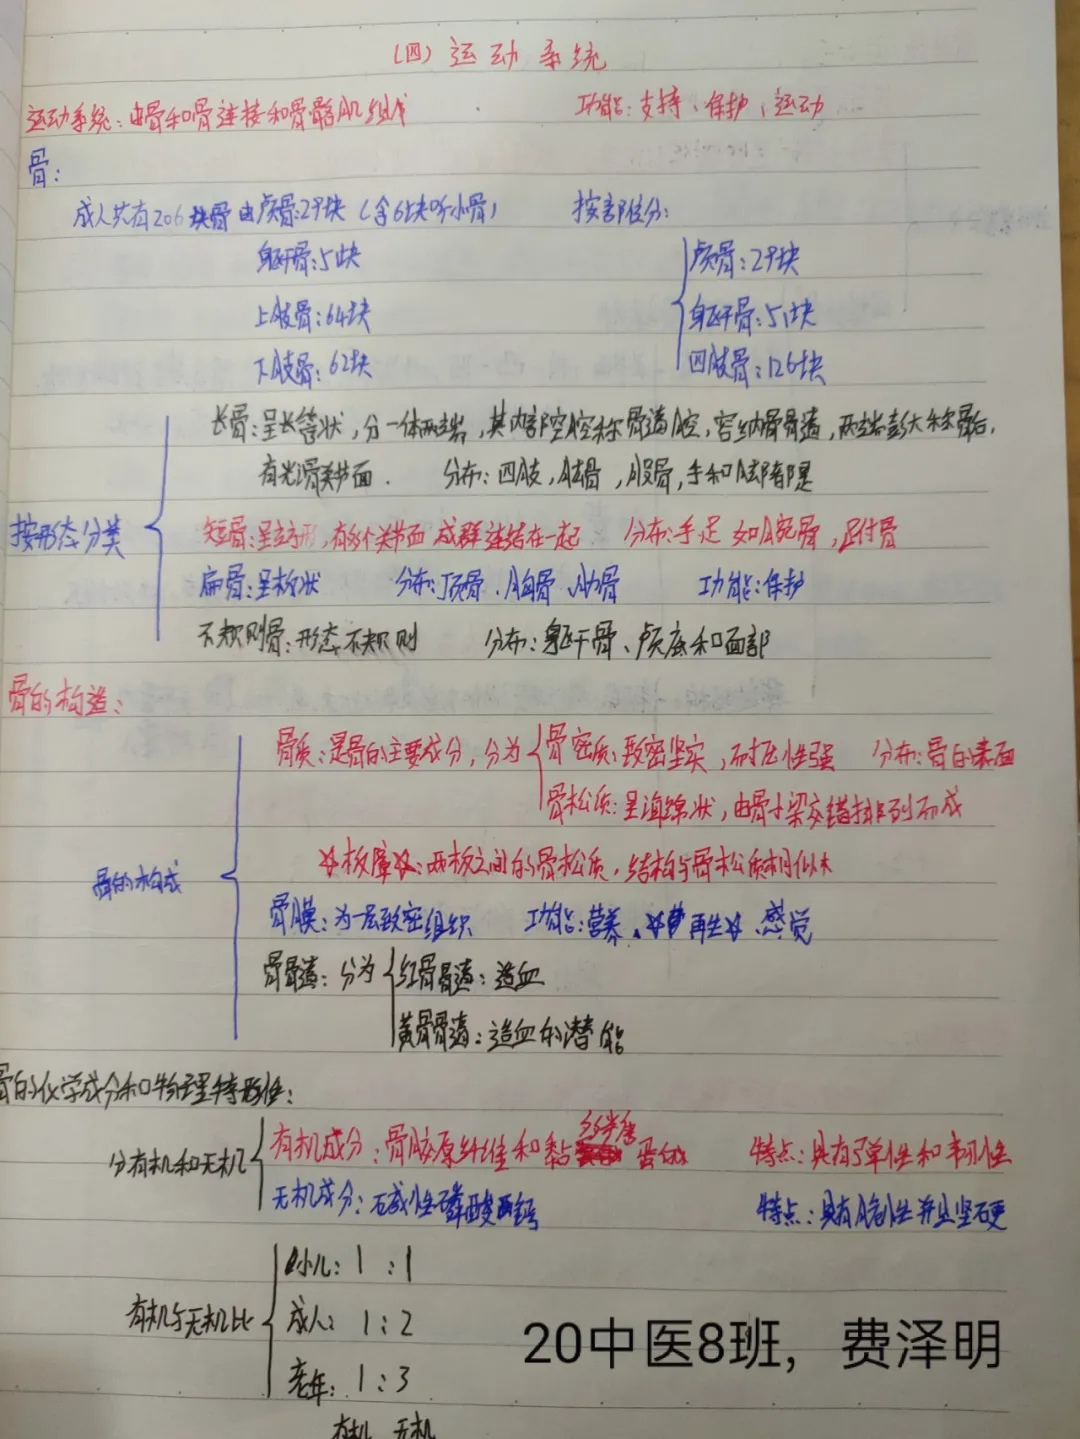 (四) 运动系统
运动系统：由骨和骨连接和骨骼肌组成 功能：支持、保护、运动
骨：
成人共有206块骨由颅骨:29块（含6块听小骨） 按部位分：
躯干骨:51块 颅骨:29块
上肢骨:64块 躯干骨:51块
下肢骨:62块 四肢骨:126块
长骨：呈长管状，分一体两端，其内部空腔称骨髓腔，容纳骨骨髓，两端膨大称骺，
有光滑关节面. 分布：四肢，肱骨，股骨，手和脚都是
按形态分类
短骨：呈立方形，有多个关节面成群连结在一起 分布:手足 如腕骨，跗骨
扁骨：呈板状 分布:顶骨、胸骨、肋骨 功能:保护
不规则骨：形态不规则 分布：躯干骨、颅底和面部
骨的构造：
骨质：是骨的主要成分，分为 骨密质：致密坚实，耐压性强 分布：骨的表面
骨松质：呈海绵状，由骨小梁交错排列而成
☆板障☆：两板之间的骨松质，结构与骨松质相似
骨的构成
骨膜：为一层致密组织 功能：营养、☆再生☆、感觉
骨骨髓：分为 红骨骨髓：造血
黄骨骨髓：造血的潜能
骨的化学成分和物理特性：
分有机和无机 有机成分：骨胶原纤维和黏多糖蛋白 特点：具有弹性和韧性
无机成分：碱性磷酸钙 特点：具有脆性并且坚硬
小儿：1：1
有机与无机比 成人：1：2
老年：1：3
有机 无机
20中医8班，费泽明